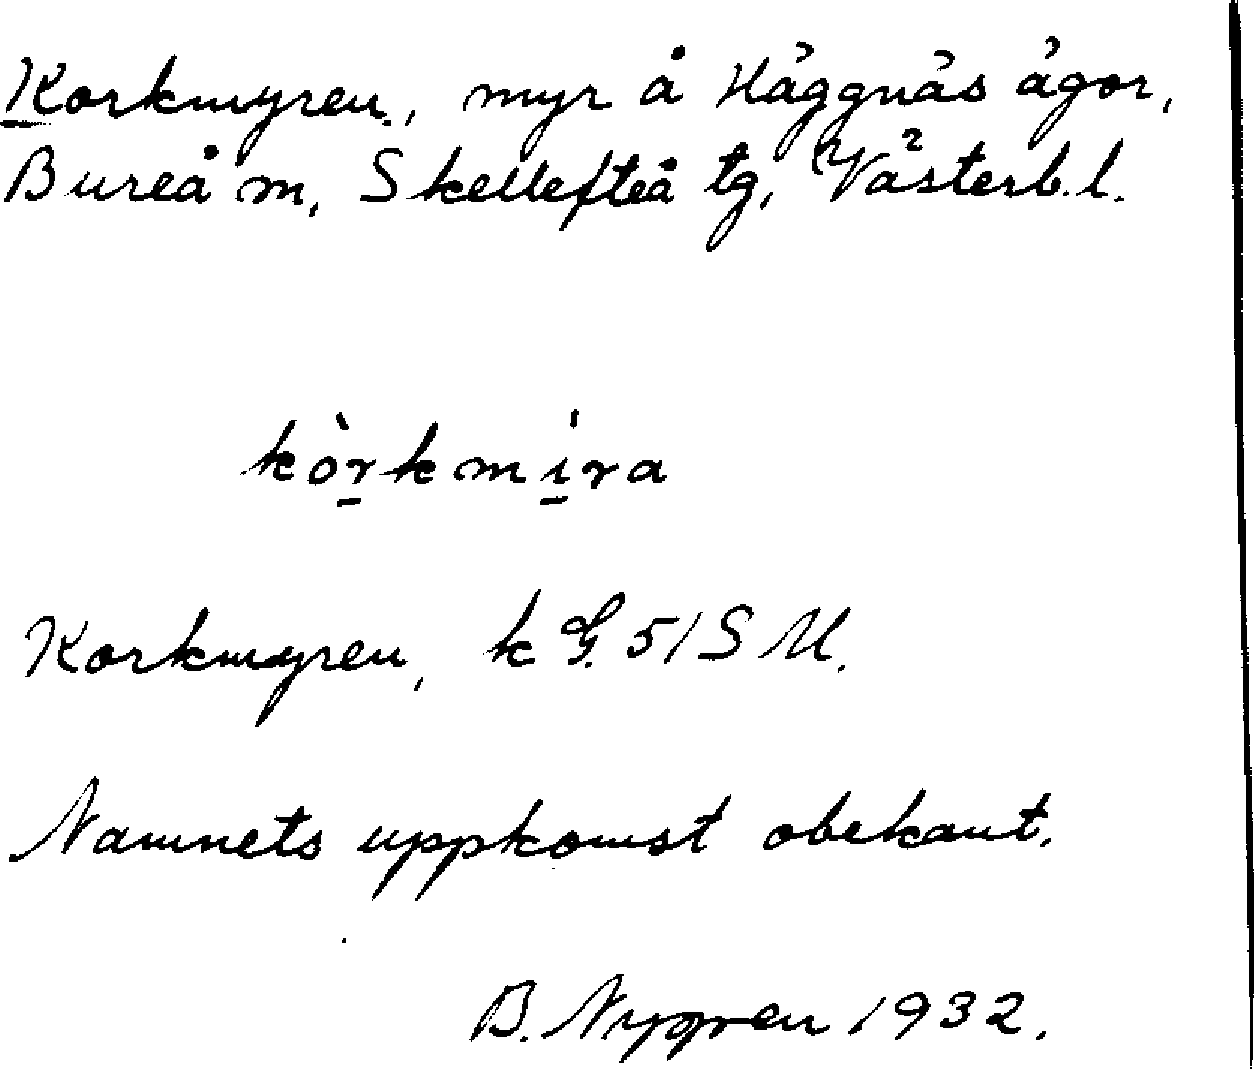 Korkmyren, myr å Häggnäs ägor,
Bureå m, Skellefteå tg, Västerb.l.
kòrkmíra
Korkmyren, k G. 51 S M.
Namnets uppkomst obekant.
B. Nygren 1932.